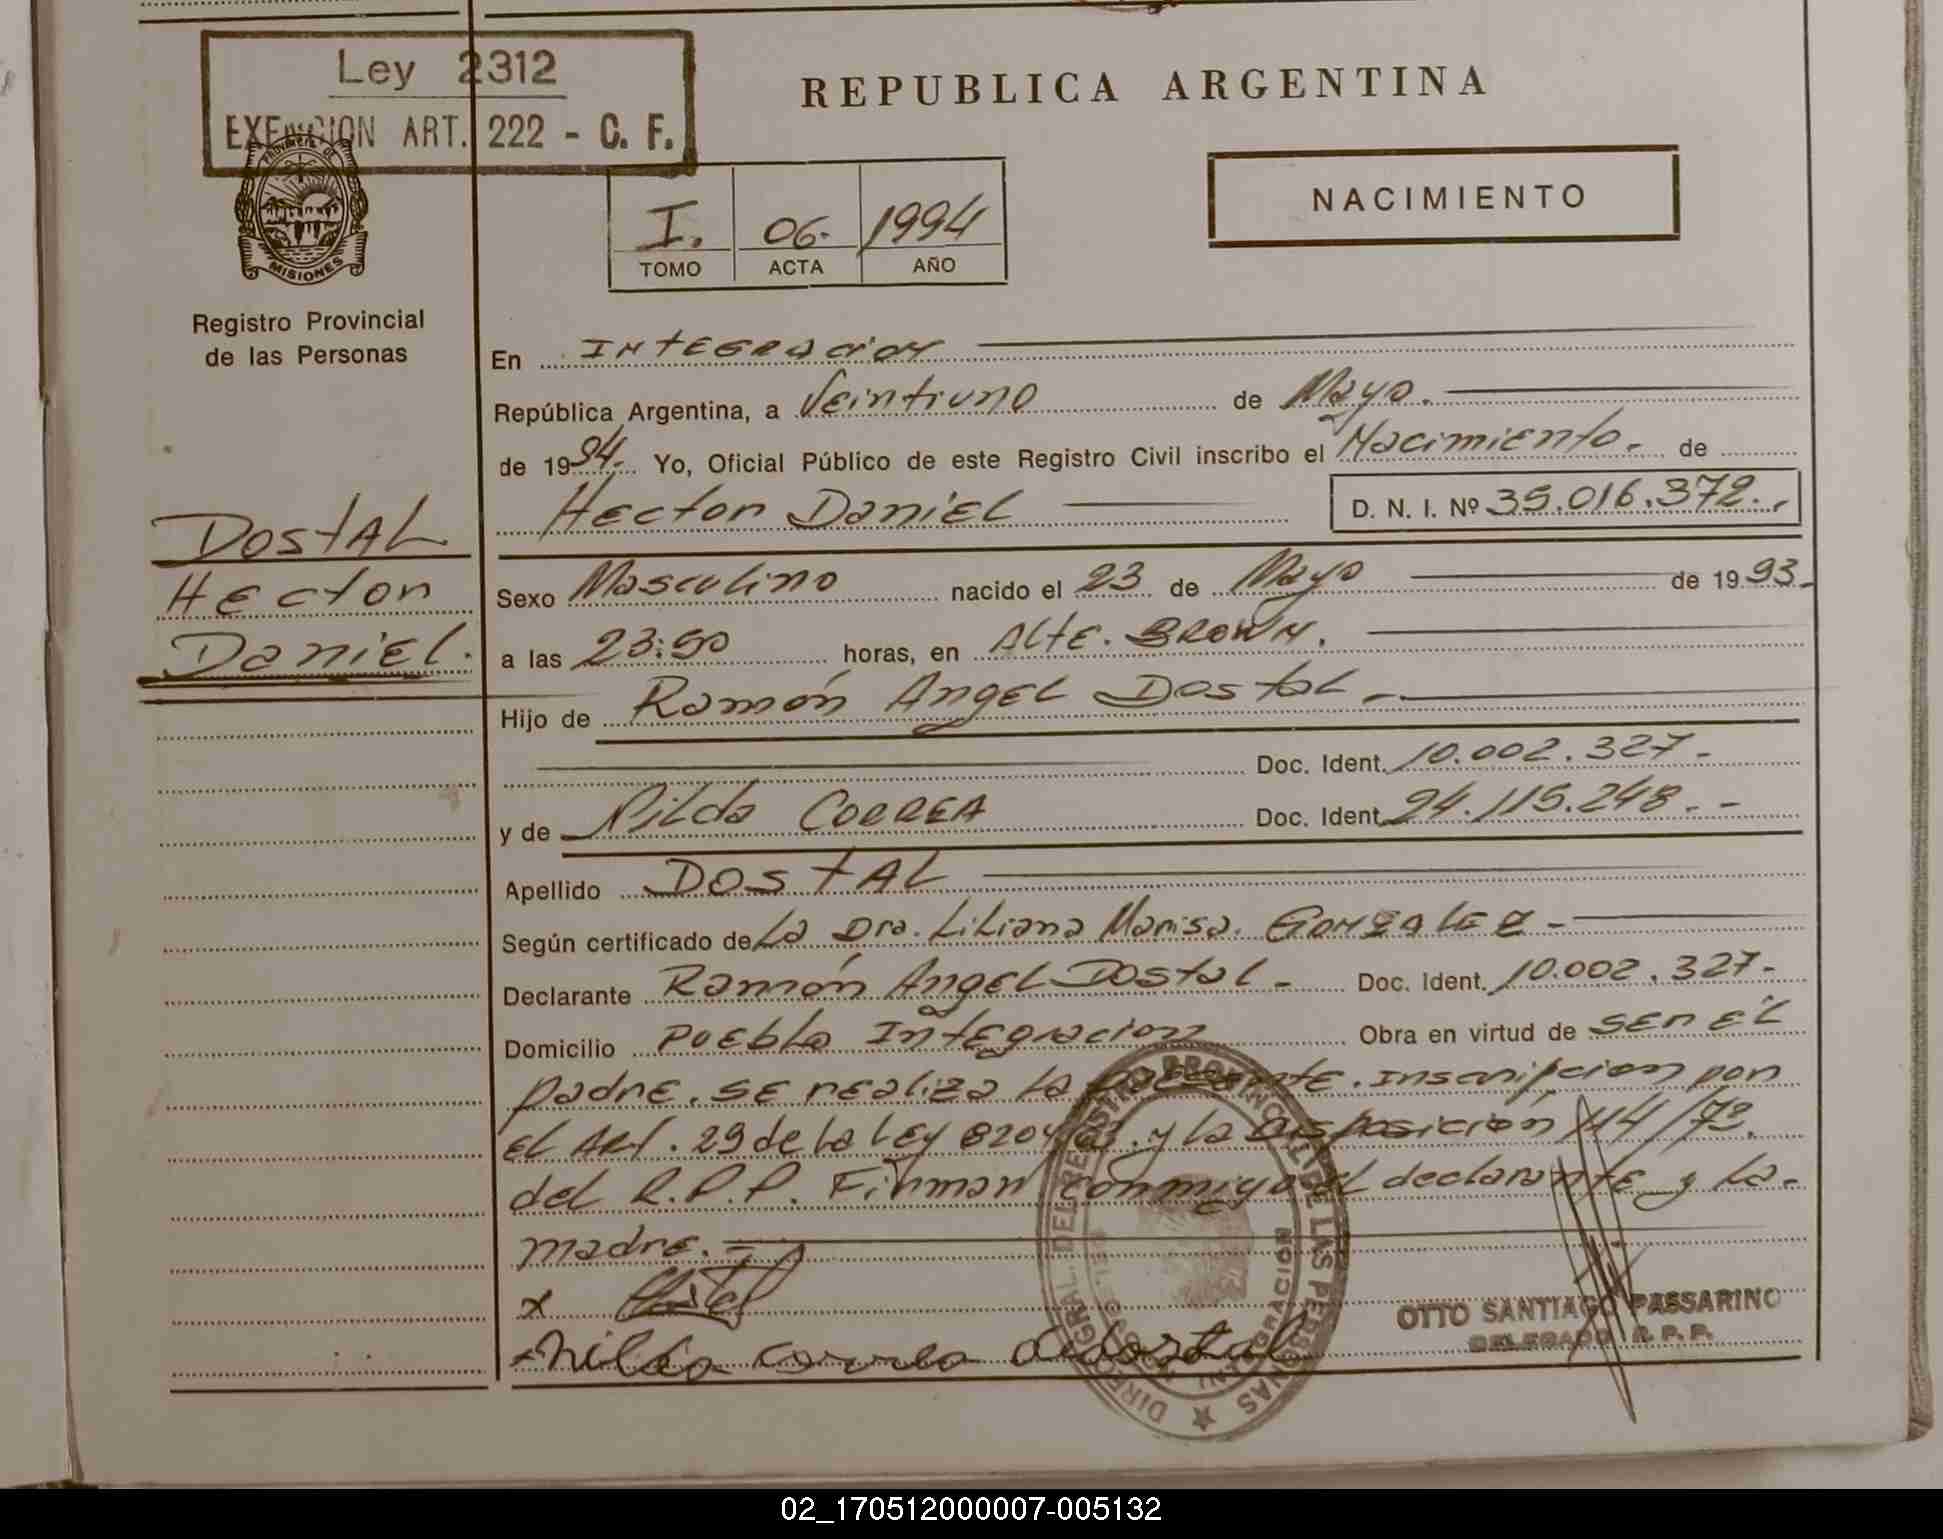 Ley 2312
EXENCION ART. 222 - C. F.
REPUBLICA ARGENTINA
NACIMIENTO
I. 06. 1994
TOMO ACTA AÑO
PROVINCIA DE
MISIONES
Registro Provincial
de las Personas
DostAL
Hector
DaniEL.
En INtEGRacion
República Argentina, a Veintiuno de Mayo.
de 1994. Yo, Oficial Público de este Registro Civil inscribo el Nacimiento. de
Hector DaniEL D. N. I. Nº 35.016.372.
Sexo Masculino nacido el 23 de Mayo de 1993.
a las 23:50 horas, en Alte. BROWN.
Hijo de Ramón AngEL DostaL.
Doc. Ident. 10.002.327.-
y de Nilda CORREA Doc. Ident. 24.115.248.-
Apellido DOStAL
Según certificado de La Dra. LiLiana Marisa. GONZALEZ-
Declarante Ramón AngEL DostaL. Doc. Ident. 10.002.327-
Domicilio Puebla Integracion Obra en virtud de ser EL
padre. se realiza la presente. Inscripcion por
el Art. 29 de la Ley 8204/63. y la Disposición 114/73.
del R.P.P. Firman conmigo el declarante y la.
madre.
x Dostal
x Nilda correa de dostal
DIREC. GRAL. DEL REGISTRO PROVINCIAL DE LAS PERSONAS
INTEGRACION
OTTO SANTIAGO PASSARINO
DELEGADO R. P. P.
02_170512000007-005132